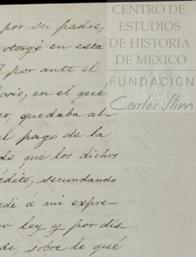 por su padre,
otorgó en esta
y por ante el
en el que
quedaba al
el pago de la
de que los dichos
édito, secundando
edi a mi expre-
ley y por dis
de, sobre lo qué
CENTRO DE
ESTUDIOS
DE HISTORIA
DE MEXICO
FUNDACIÓN
Carlos Slim